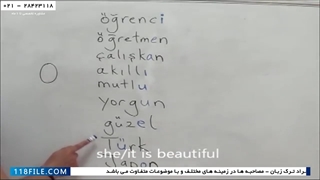 ۰۲۱ - ۲۸۴۲۳۱۱۸
öğrenci
öğretmen
çalışkan
akıllı
mutlu
yorgun
güzel
Türk
Japon
she/it is beautiful
118FILE.COM
فراد ترک زبان - مصاحبه ها در زمینه های مختلف و با موضوعات متفاوت می باشد